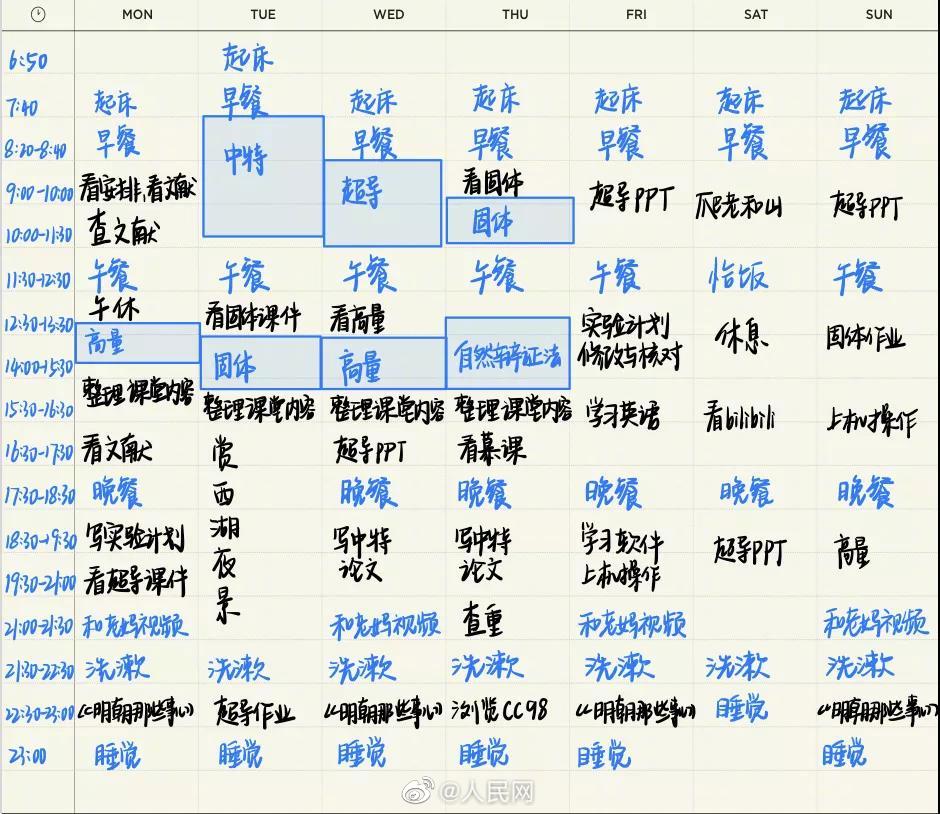 MON TUE WED THU FRI SAT SUN
6:50 起床
7:40 起床 早餐 起床 起床 起床 起床 起床
8:20-8:40 早餐 中特 早餐 早餐 早餐 早餐 早餐
9:00-10:00 看安排、看文献 超导 看固体 超导PPT 爬老和山 超导PPT
10:00-11:30 查文献 固体
11:30-12:30 午餐 午餐 午餐 午餐 午餐 恰饭 午餐
午休
12:30-13:30 看固体课件 看高量 实验计划 休息 固体作业
高量
14:00-15:30 固体 高量 自然辩证法 修改与核对
整理课堂内容
15:30-16:30 整理课堂内容 整理课堂内容 整理课堂内容 学习英语 看bilibili 上机操作
16:30-17:30 看文献 赏 超导PPT 看慕课
17:30-18:30 晚餐 西 晚餐 晚餐 晚餐 晚餐 晚餐
18:30-19:30 写实验计划 湖 写中特 写中特 学习软件 超导PPT 高量
19:30-21:00 看超导课件 夜 论文 论文 上机操作
景
21:00-21:30 和老妈视频 和老妈视频 查重 和老妈视频 和老妈视频
21:30-22:30 洗漱 洗漱 洗漱 洗漱 洗漱 洗漱 洗漱
22:30-23:00 《明朝那些事儿》 超导作业 《明朝那些事儿》 浏览CC98 《明朝那些事儿》 睡觉 《明朝那些事儿》
23:00 睡觉 睡觉 睡觉 睡觉 睡觉 睡觉
@人民网